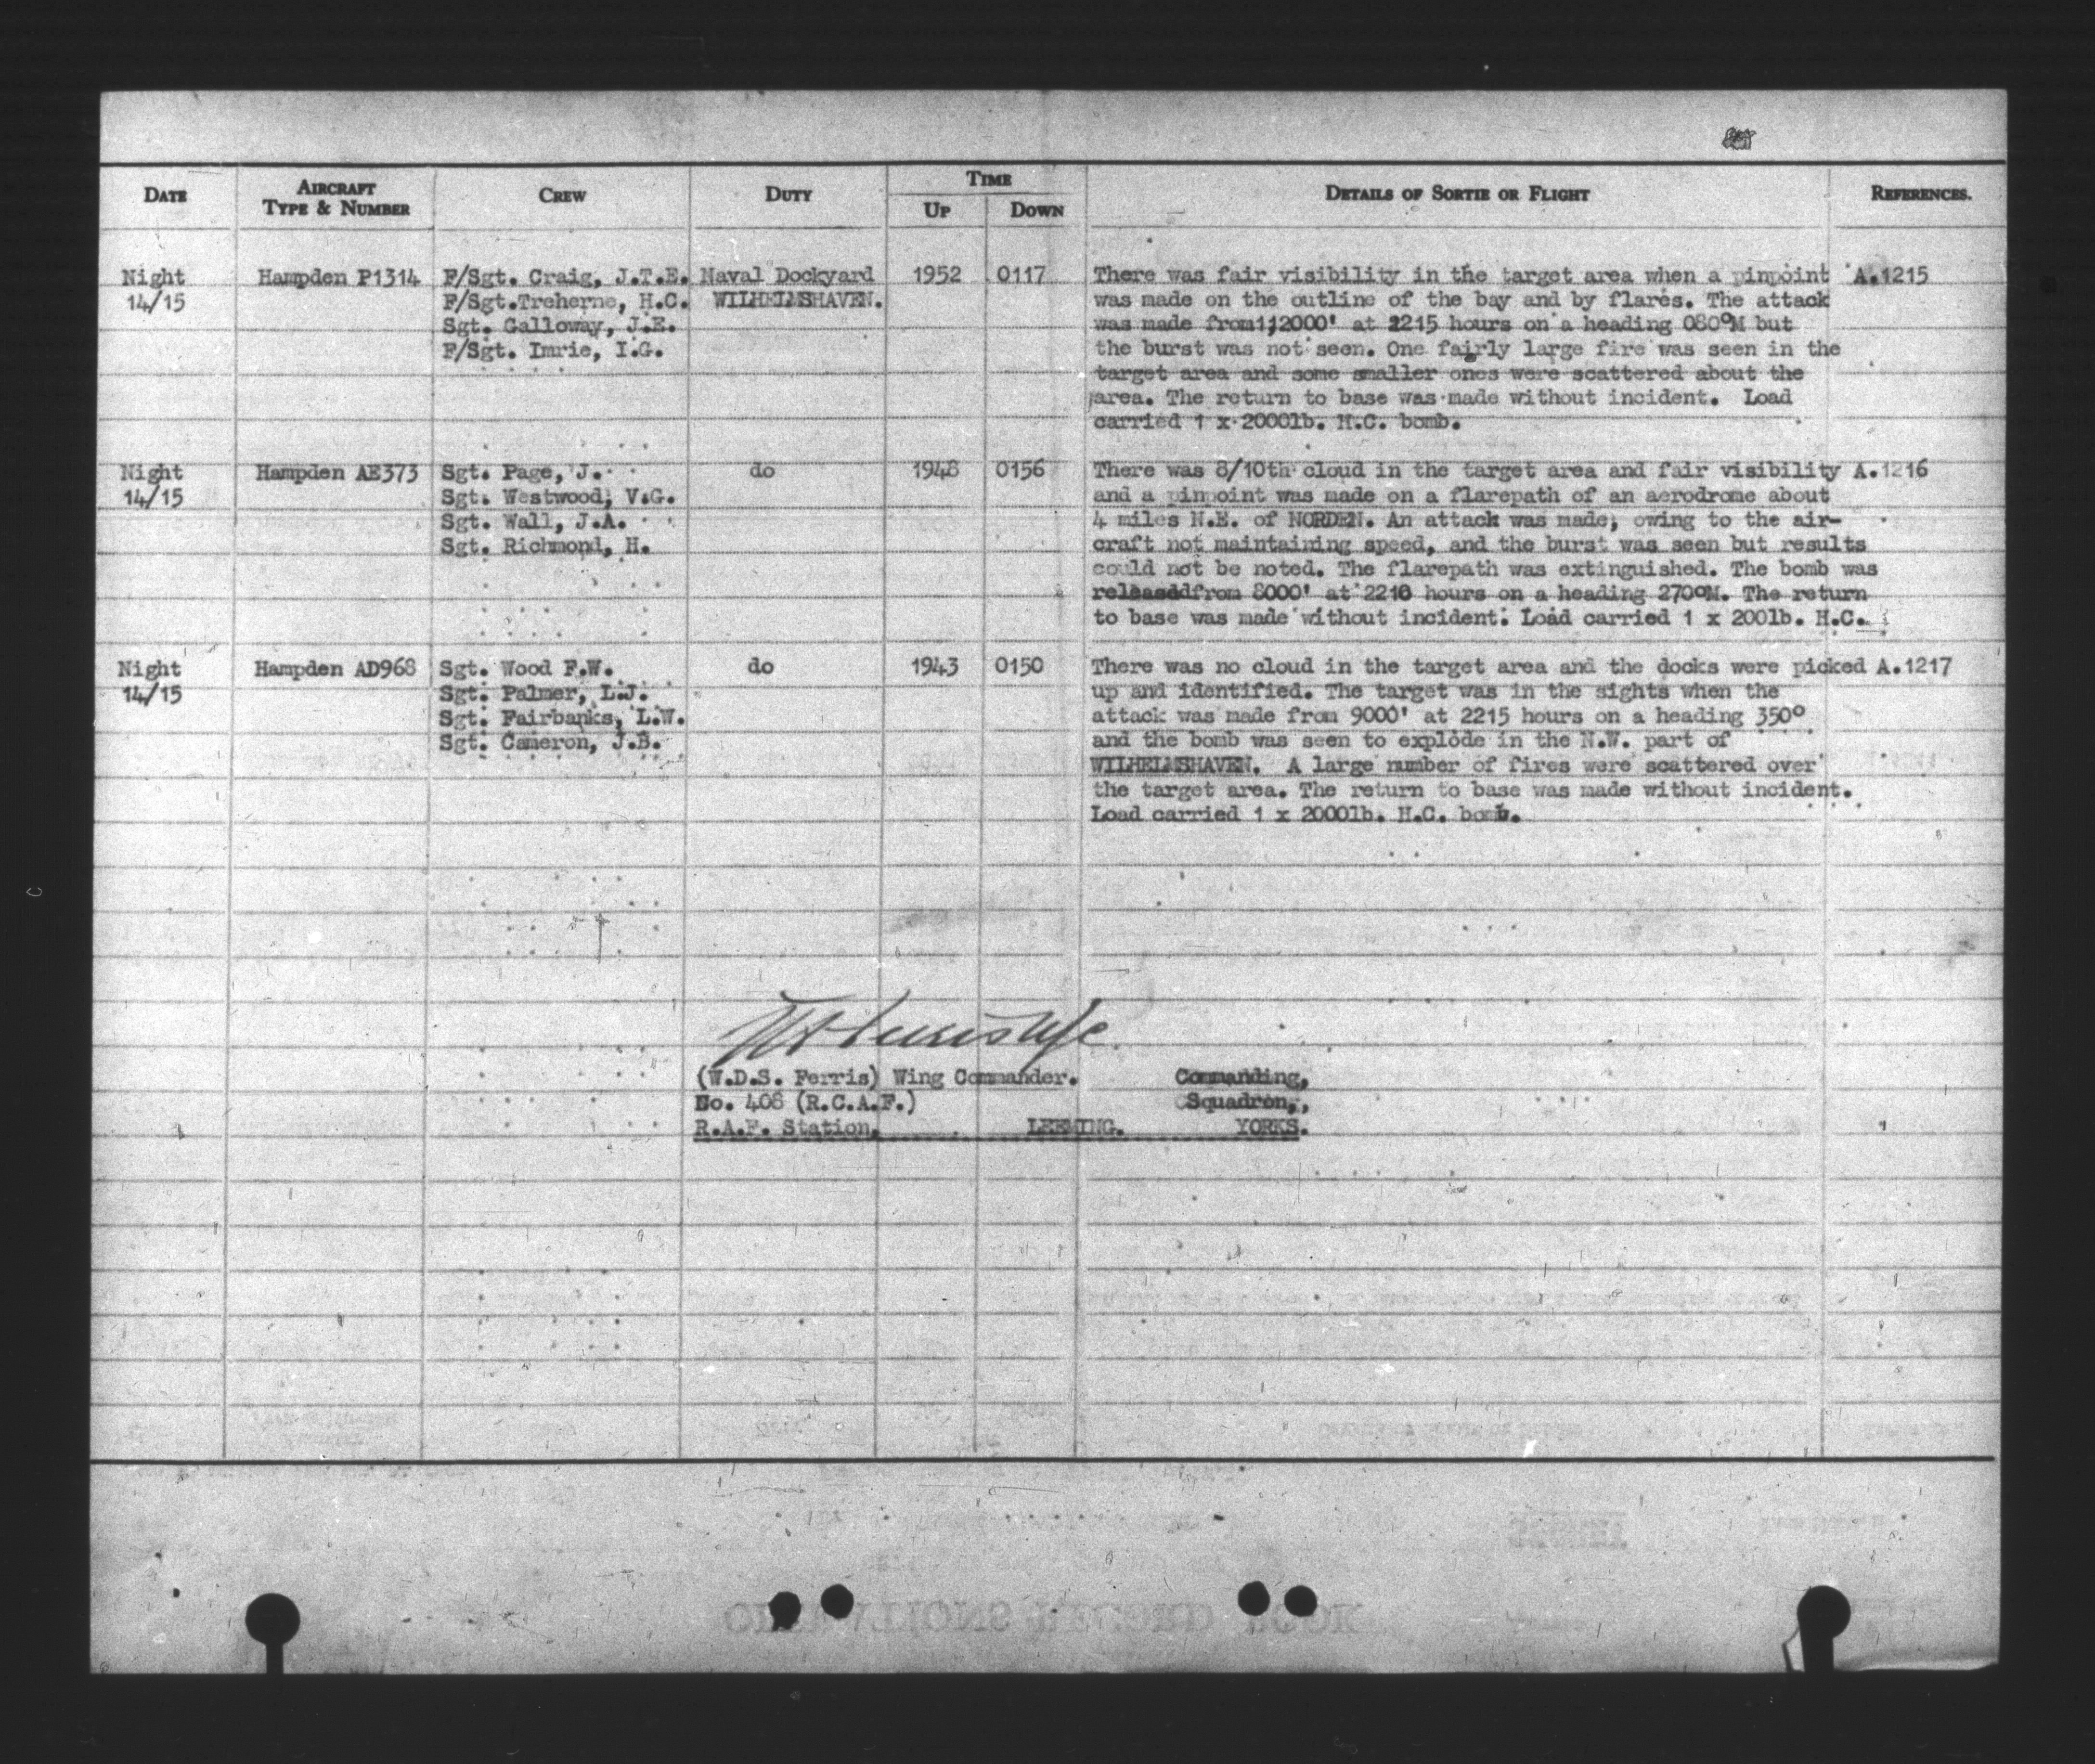 DATE AIRCRAFT TYPE & NUMBER CREW DUTY TIME UP DOWN DETAILS OF SORTIE OR FLIGHT REFERENCES.
Night Hampden P1314 F/Sgt. Craig, J.T.E. Naval Dockyard 1952 0117 There was fair visibility in the target area when a pinpoint A.1215
14/15 F/Sgt.Treherne, H.C. WILHELMSHAVEN. was made on the outline of the bay and by flares. The attack
Sgt. Galloway, J.E. was made from 12000' at 2215 hours on a heading 080°M but
F/Sgt. Imrie, I.G. the burst was not seen. One fairly large fire was seen in the
target area and some smaller ones were scattered about the
area. The return to base was made without incident. Load
carried 1 x 2000lb. H.C. bomb.
Night Hampden AE373 Sgt. Page, J. do 1948 0156 There was 8/10th cloud in the target area and fair visibility A.1216
14/15 Sgt. Westwood, V.G. and a pinpoint was made on a flarepath of an aerodrome about
Sgt. Wall, J.A. 4 miles N.E. of NORDEN. An attack was made, owing to the air-
Sgt. Richmond, H. craft not maintaining speed, and the burst was seen but results
could not be noted. The flarepath was extinguished. The bomb was
released from 8000' at 2210 hours on a heading 270°M. The return
to base was made without incident. Load carried 1 x 200lb. H.C.
Night Hampden AD968 Sgt. Wood F.W. do 1943 0150 There was no cloud in the target area and the docks were picked A.1217
14/15 Sgt. Palmer, L.J. up and identified. The target was in the sights when the
Sgt. Fairbanks, L.W. attack was made from 9000' at 2215 hours on a heading 350°
Sgt. Cameron, J.B. and the bomb was seen to explode in the N.W. part of
WILHELMSHAVEN. A large number of fires were scattered over
the target area. The return to base was made without incident.
Load carried 1 x 2000lb. H.C. bomb.
(W.D.S. Ferris) Wing Commander. Commanding,
No. 408 (R.C.A.F.) Squadron,,
R.A.F. Station, LEEMING. YORKS.